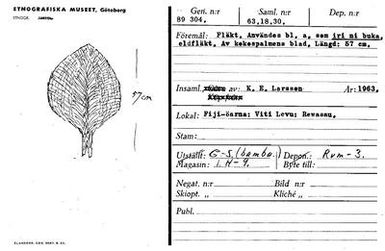 ETNOGRAFISKA MUSEET, Göteborg
57cm
Gen. n:r Saml. n:r Dep. n:r
89 304. 63,18.30.
Föremål: Fläkt, Användes bl, a, som iri ni buka,
eldfläkt, Av kokospalmens blad, Längd: 57 cm,
Insaml. av: K. E. Larsson År: 1963,
Lokal: Fiji-öarna: Viti Levu: Revasau,
Stam:
Utställt: G-S. (bambu.) Depon: Rum-3.
Magasin: I H-9. Byte till:
Negat. n:r Bild n:r
Skiopt. n:r Kliché n:r
Publ.